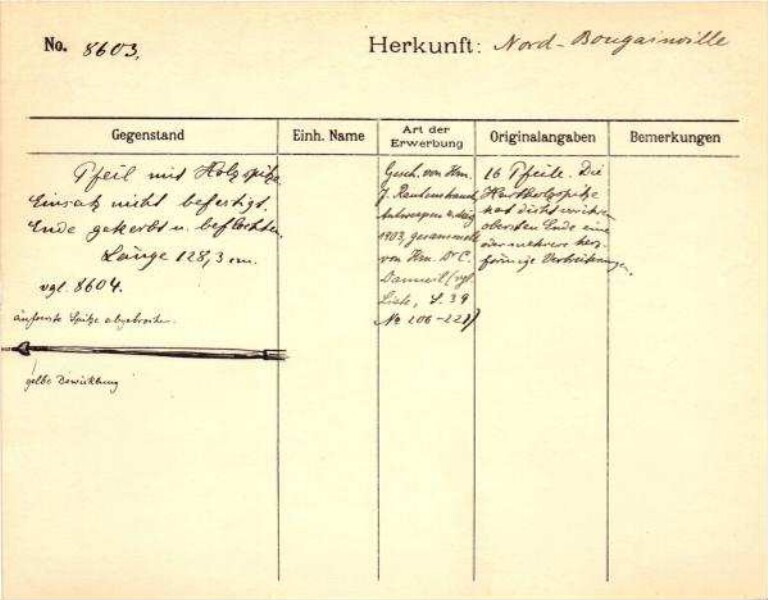 No. 8603.
Herkunft: Nord-Bougainville
Gegenstand
Einh. Name
Art der
Erwerbung
Originalangaben
Bemerkungen
Pfeil mit Holzspitze
Einsatz nicht befestigt.
Ende gekerbt u. beflochten.
Länge 128,3 cm.
vgl. 8604.
äußerste Spitze abgebrochen.
gelbe Bewicklung
Gesch. von Hrn.
J. Rautenstrauch,
Antwerpen
1903, gesammelt
von Hrn. Dr C.
Danneil (vgl.
Liste, S. 39
No 206-221)
16 Pfeile. Die
Hartholzspitze
hat dicht
obersten Ende eine
oder mehrere
förmige Verdickungen.